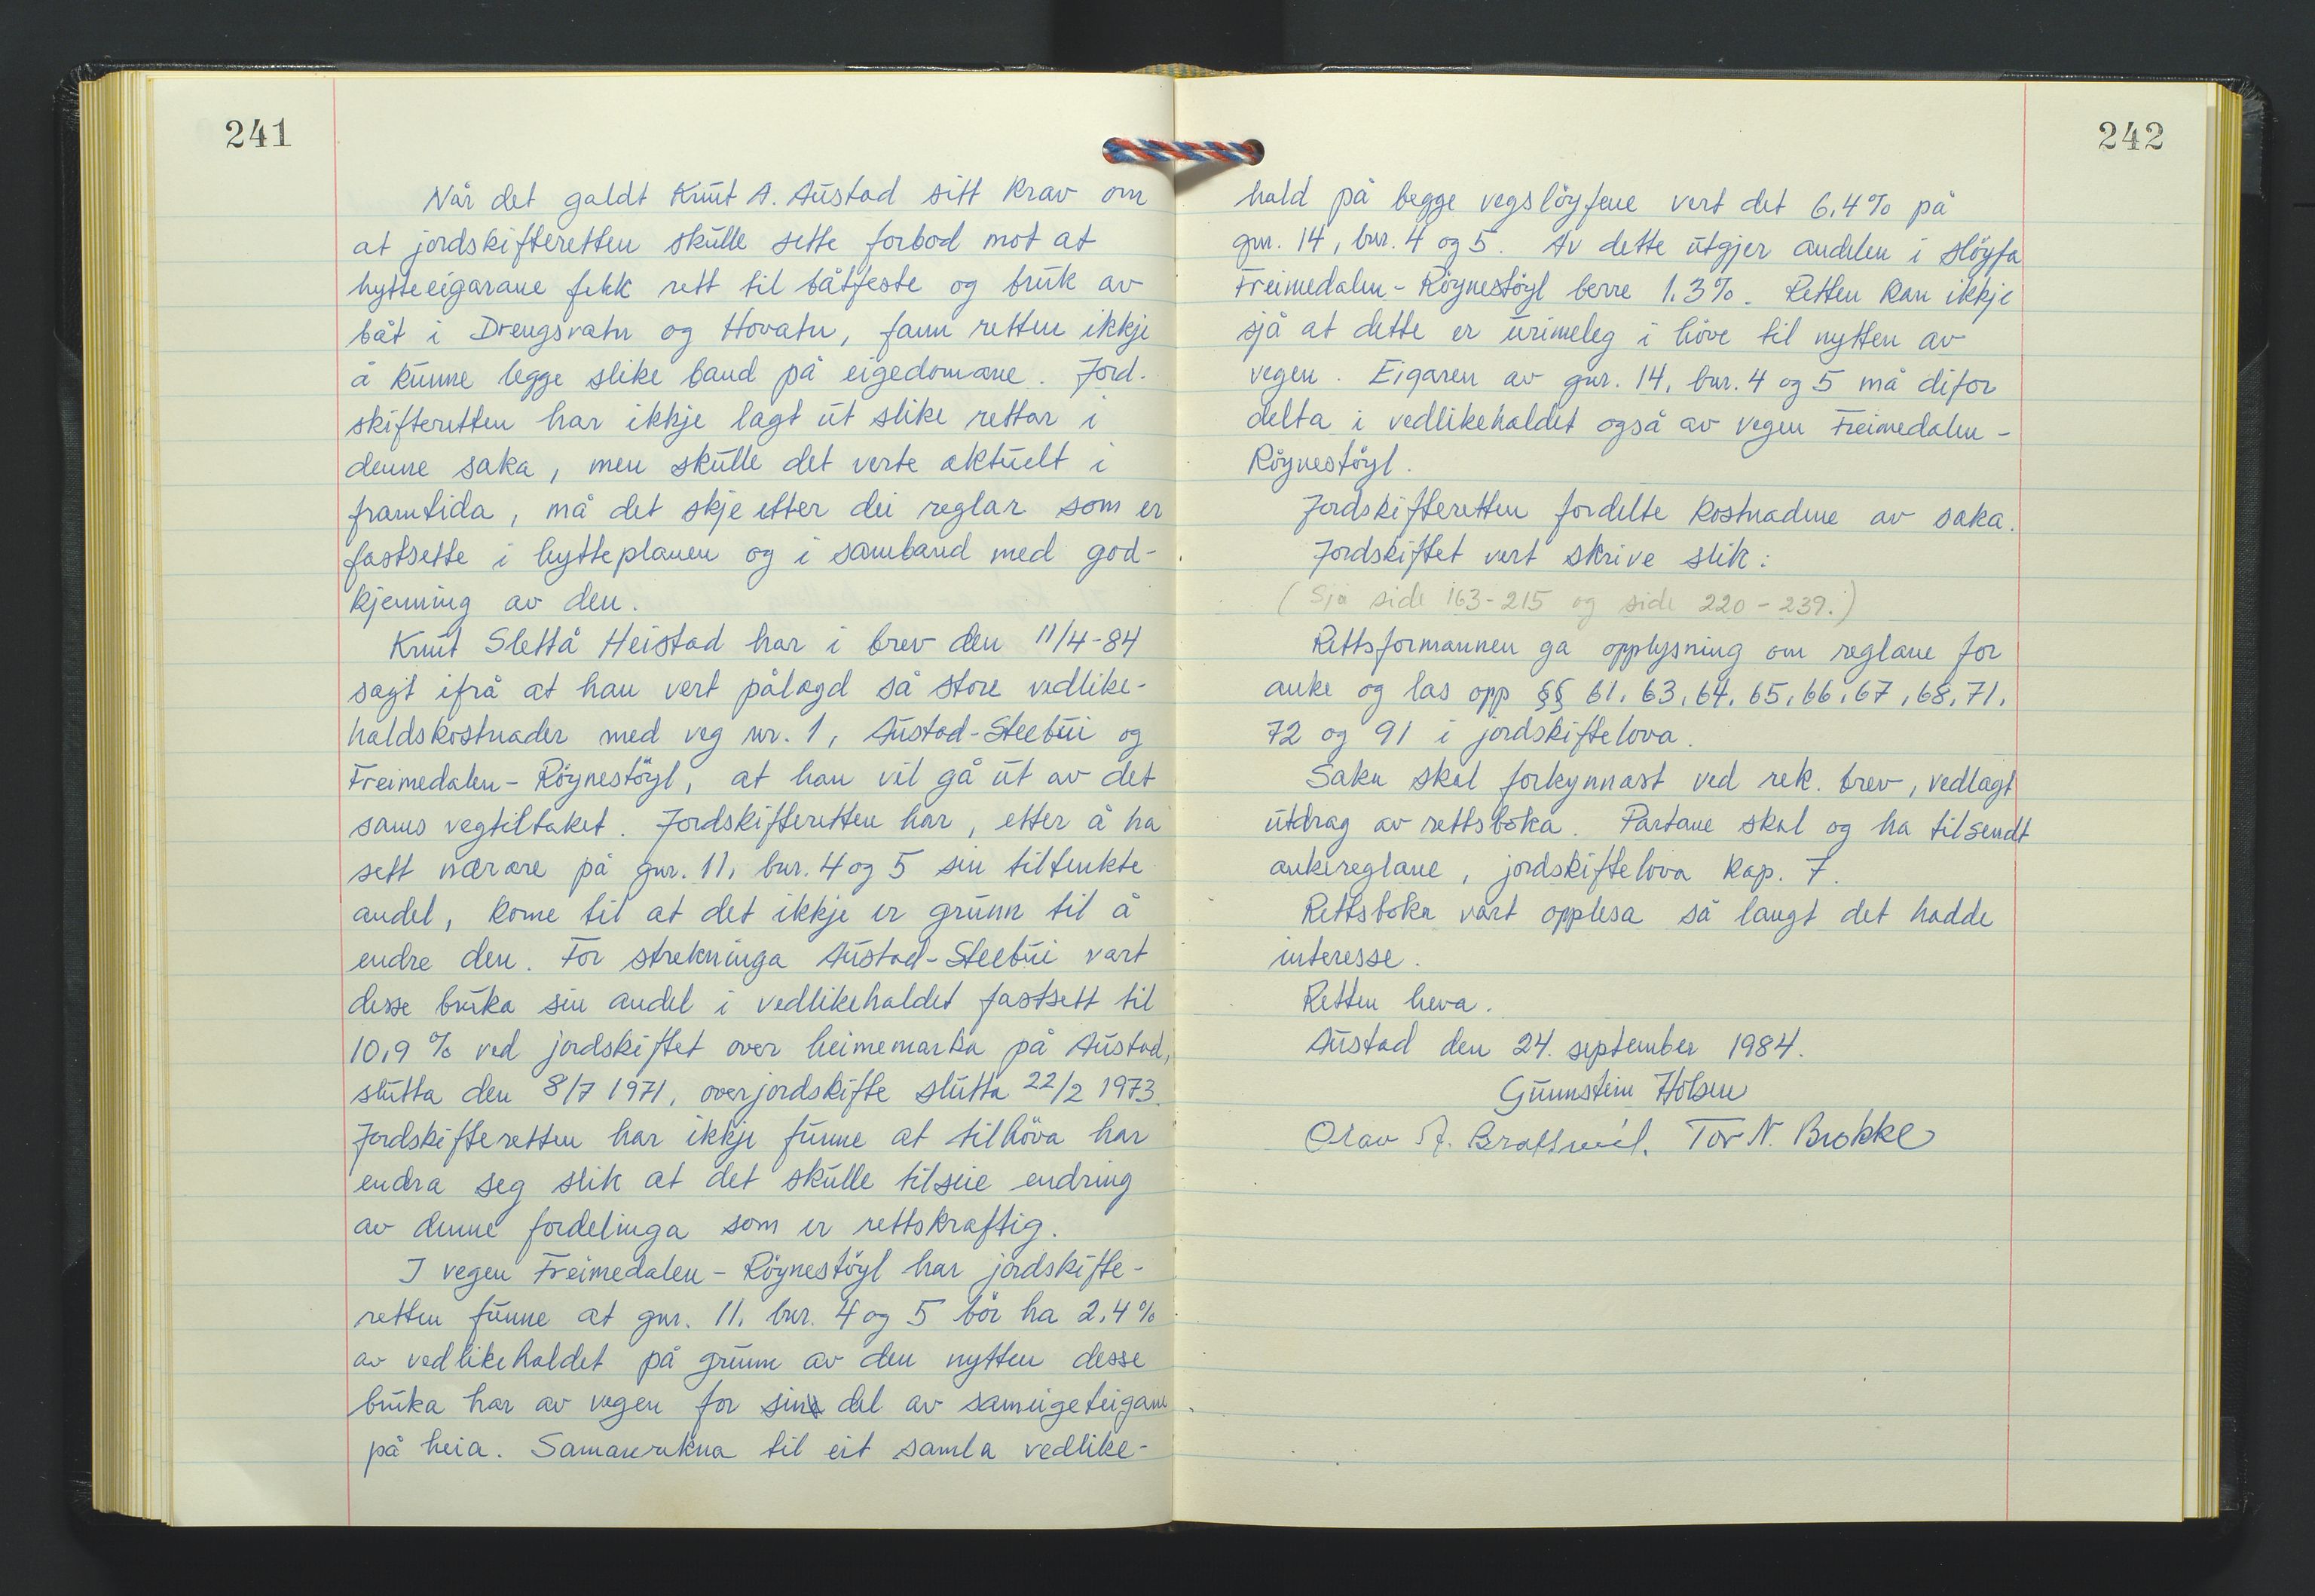 241
Når det galdt Knut A. Austad sitt krav om
at jordskifteretten skulle sette forbod mot at
hytteeigarane fekk rett til båtfeste og bruk av
båt i Drengsvatn og Hovatn, fann retten ikkje
å kunne legge slike band på eigedomane. Jord-
skifteretten har ikkje lagt ut slike rettar i
denne saka, men skulle det verte aktuelt i
framtida, må det skje etter dei reglar som er
fastsette i hytteplanen og i samband med god-
kjenning av den.
Knut Slettå Heistad har i brev den 11/4-84
sagt ifrå at han vert pålagd så store vedlike-
haldskostnader med veg nr. 1, Austad-Steebui og
Freimedalen-Röynestöyl, at han vil gå ut av det
sams vegtiltaket. Jordskifteretten har, etter å ha
sett nærare på gnr. 11, bnr. 4 og 5 sin tiltenkte
andel, kome til at det ikkje er grunn til å
endre den. For strekninga Austad-Steebui vart
desse bruka sin andel i vedlikehaldet fastsett til
10,9 % ved jordskiftet over heimemarka på Austad,
slutta den 8/7 1971, overjordskifte slutta 22/2 1973.
Jordskifteretten har ikkje funne at tilhöva har
endra seg slik at det skulle tilseie endring
av denne fordelinga som er rettskraftig.
I vegen Freimedalen-Röynestöyl har jordskifte-
retten funne at gnr. 11, bnr. 4 og 5 bör ha 2,4 %
av vedlikehaldet på grunn av den nytten desse
bruka har av vegen for sin del av sameigeteigane
på heia. Samanrekna til eit samla vedlike-
242
hald på begge vegslöyfene vert det 6,4 % på
gnr. 14, bnr. 4 og 5. Av dette utgjer andelen i slöyfa
Freimedalen-Röynestöyl berre 1,3 %. Retten kan ikkje
sjå at dette er urimeleg i höve til nytten av
vegen. Eigaren av gnr. 14, bnr. 4 og 5 må difor
delta i vedlikehaldet også av vegen Freimedalen-
Röynestöyl.
Jordskifteretten fordelte kostnadene av saka.
Jordskiftet vert skrive slik:
(Sjå side 163-215 og side 220-239.)
Rettsformannen ga opplysning om reglane for
anke og las opp §§ 61, 63, 64, 65, 66, 67, 68, 71,
72 og 91 i jordskiftelova.
Saka skal forkynnast ved rek. brev, vedlagt
utdrag av rettsboka. Partane skal og ha tilsendt
ankereglane, jordskiftelova kap. 7.
Rettsboka vart opplesa så langt det hadde
interesse.
Retten heva.
Austad den 24. september 1984.
Gunnstein Holsen
Olav A. Tor N. Brokke